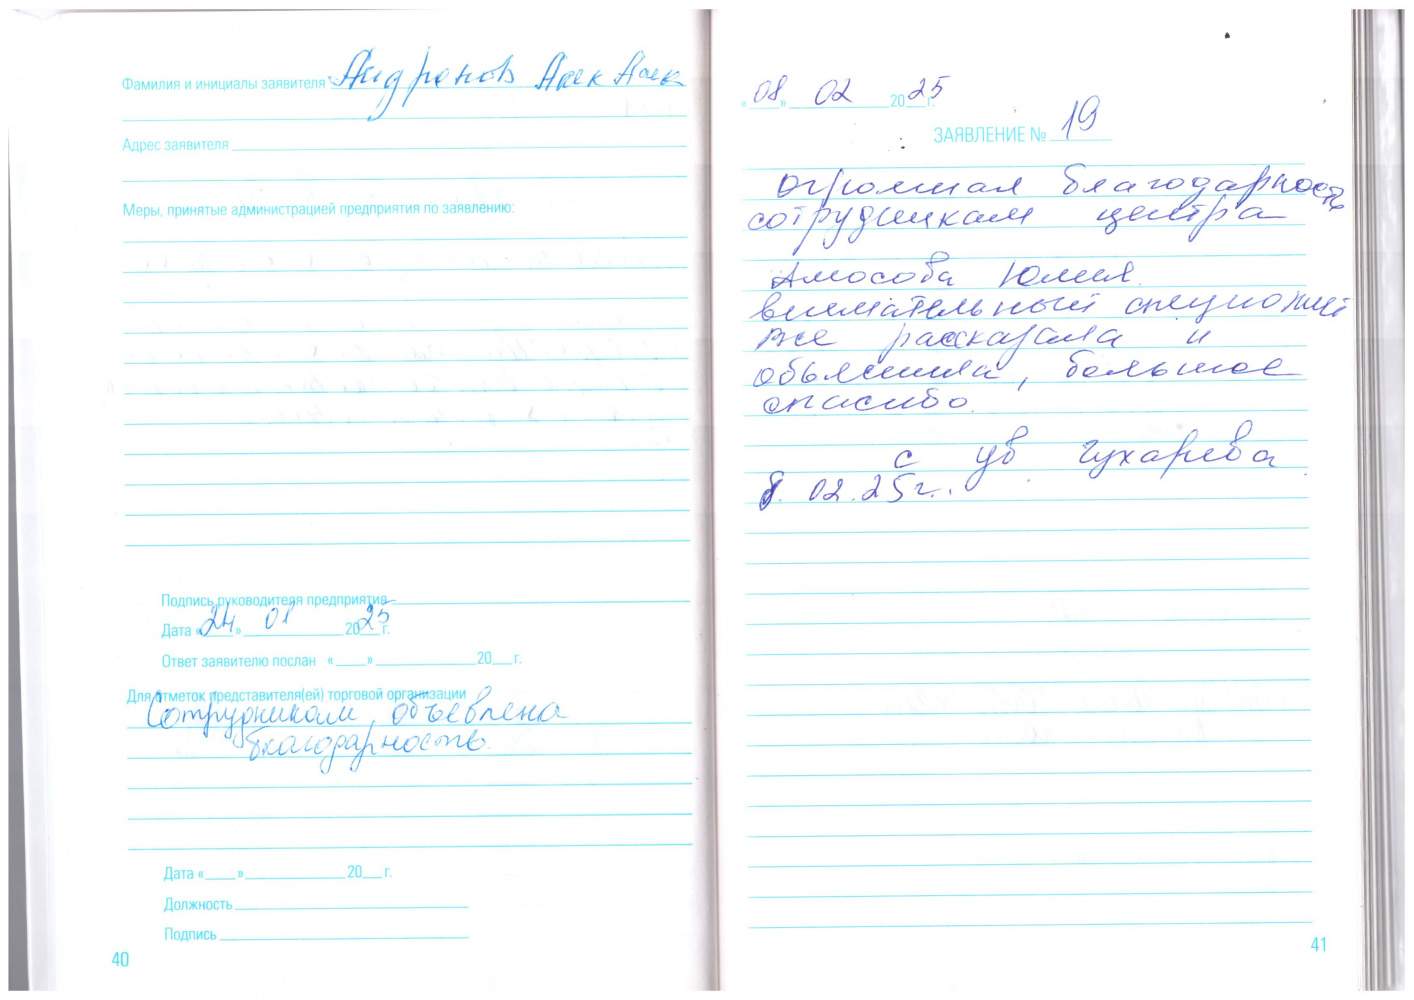 Фамилия и инициалы заявителя Андронов Алек Алек
Адрес заявителя
Меры, принятые администрацией предприятия по заявлению:
Подпись руководителя предприятия
Дата «24» 01 2025 г.
Ответ заявителю послан « » 20 г.
Для отметок представителя(ей) торговой организации
Сотрудникам объевлена
благодарность.
Дата « » 20 г.
Должность
Подпись
40
«08» 02 2025 г.
ЗАЯВЛЕНИЕ № 19
Огромная благодарность
сотрудникам центра
Амосова Юлия.
внимательный специалист
все рассказала и
обьяснила, большое
спасибо.
с ув Гухарева
8. 02. 25 г.
41